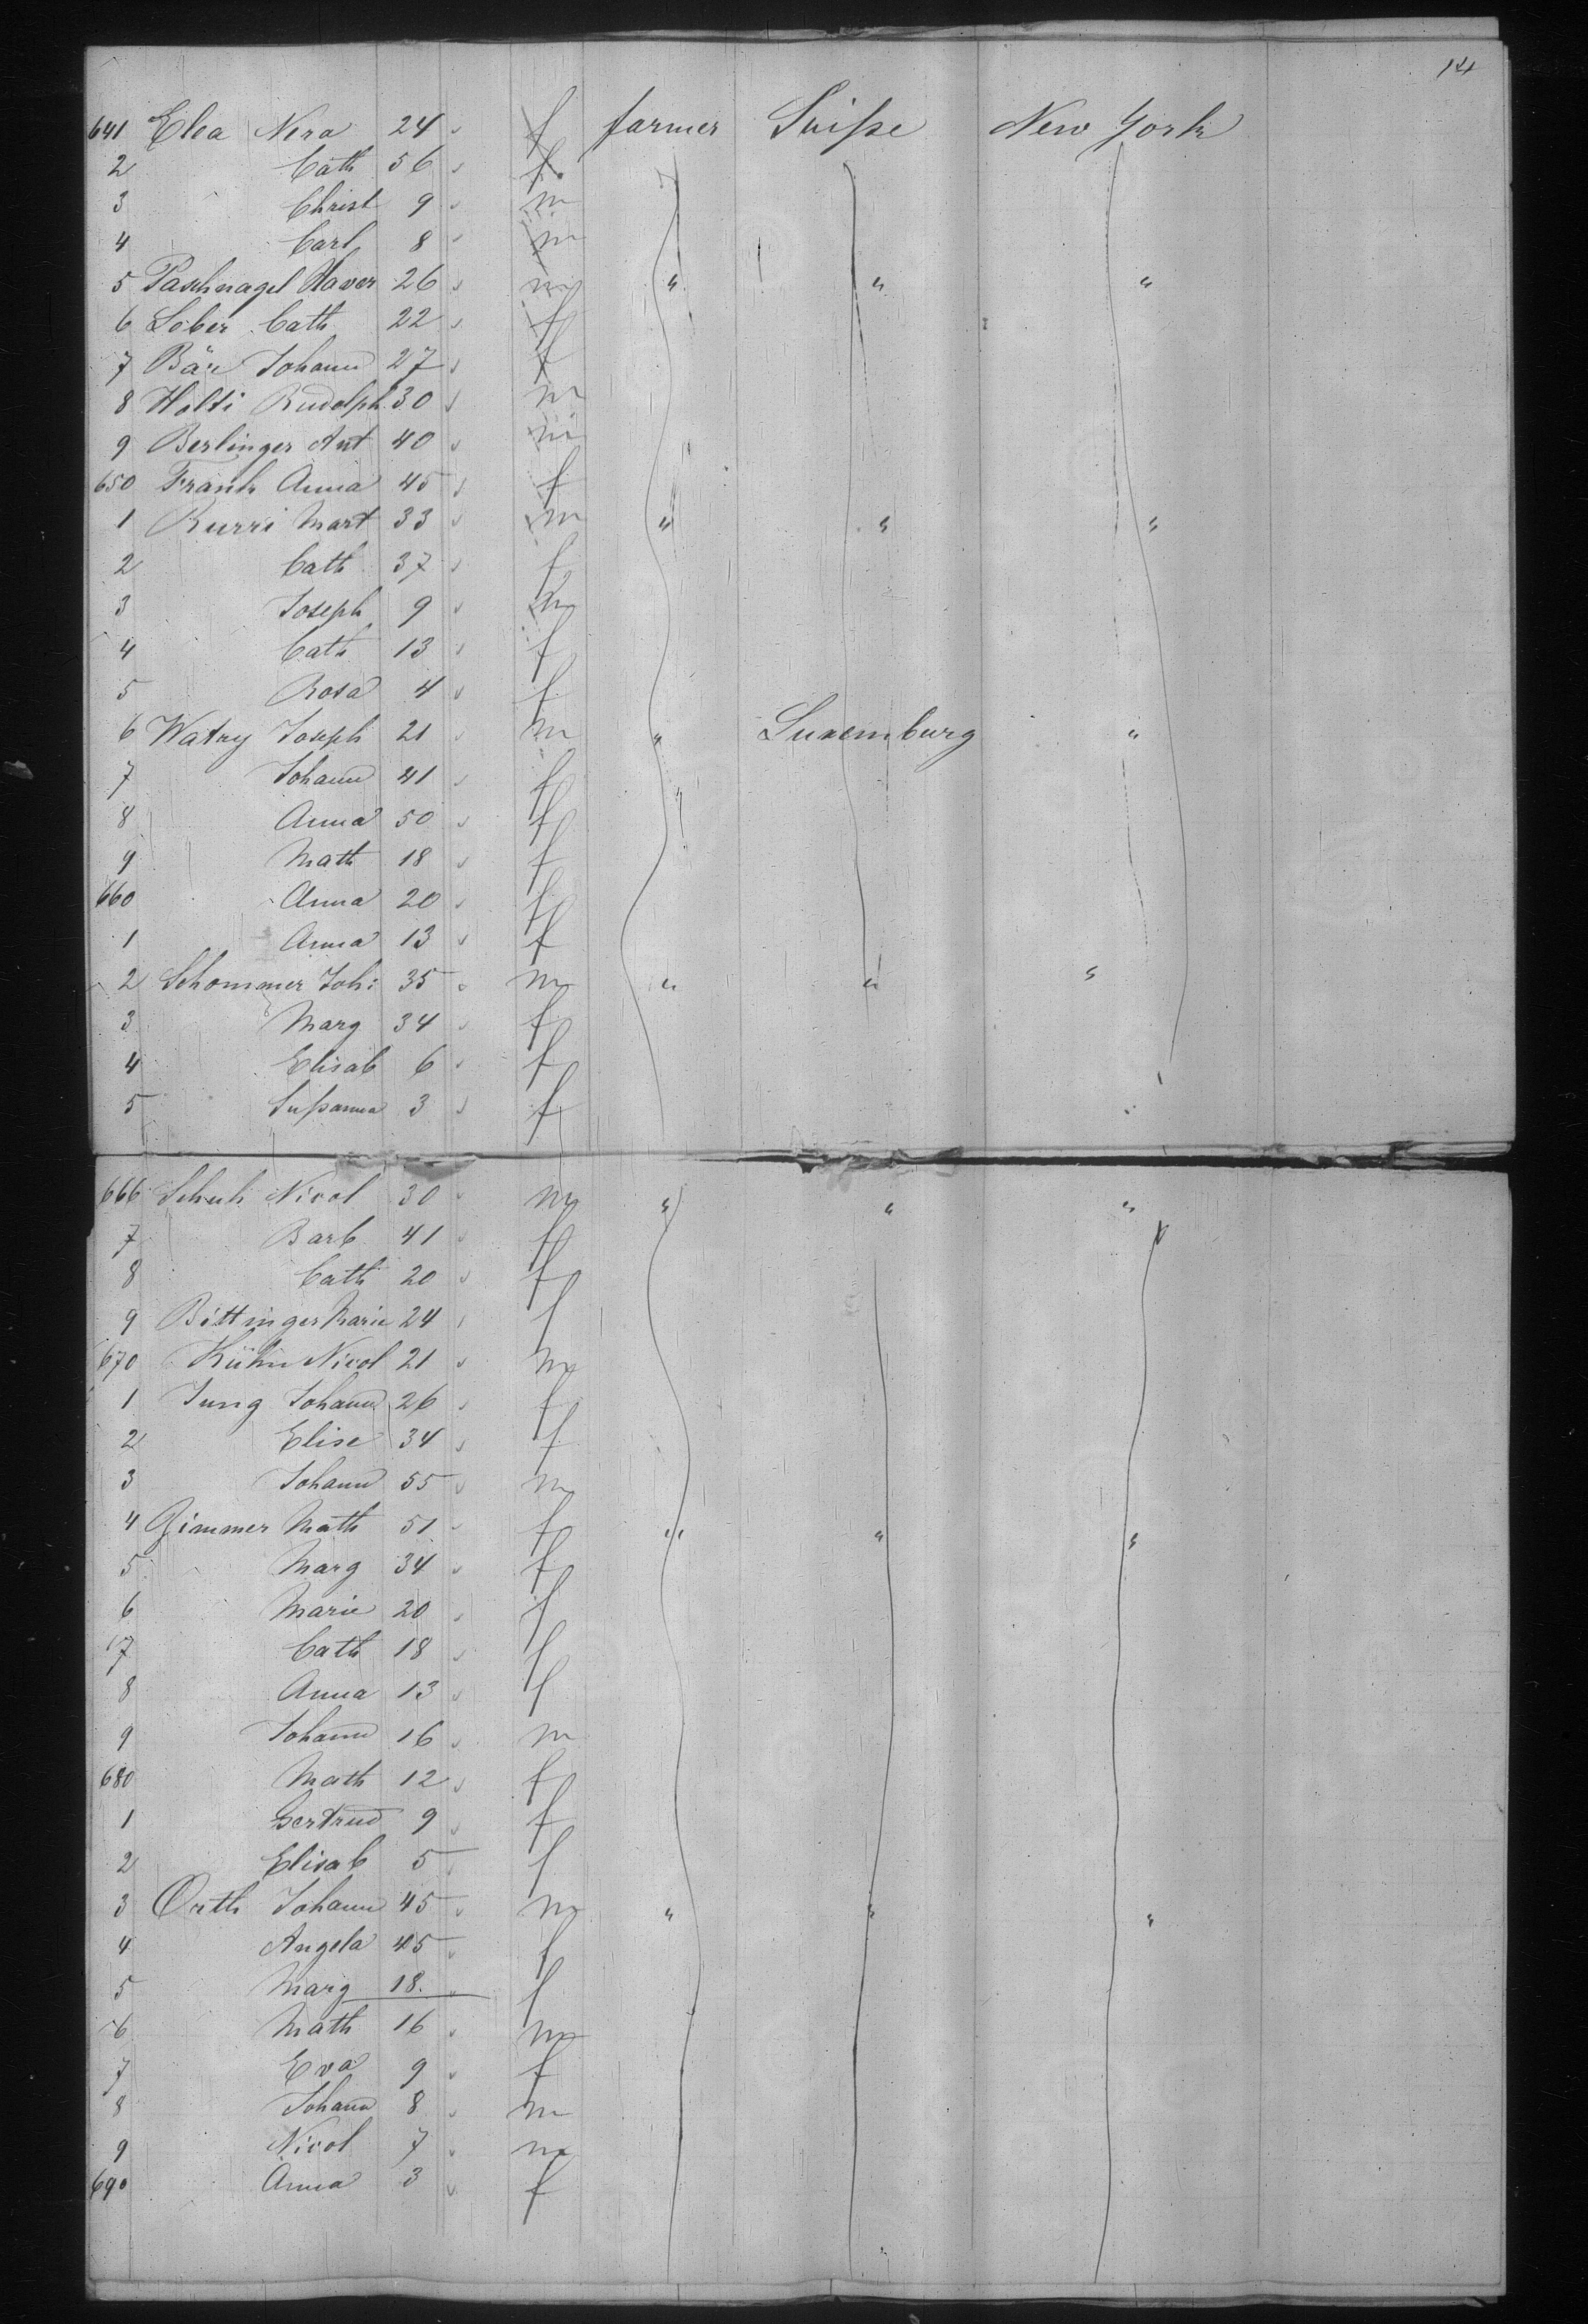 14
641 Elea Nera 24 f farmer Suiße New York
2 Cath 56 f
3 Christ 9 m
4 Carl 8 m
5 Paschnagel Xaver 26 m " " "
6 Lober Cath 22 f
7 Bär Johann 27 f
8 Holdi Rudolph 30 m
9 Berlinger Ant 40 m
650 Frank Anna 45 f
1 Kurri Mart 33 m " " "
2 Cath 37 f
3 Joseph 9 m
4 Cath 13 f
5 Rosa 4 f
6 Watry Joseph 21 m " Luxemburg "
7 Johann 41 f
8 Anna 50 f
9 Math 18 f
660 Anna 20 f
1 Anna 13 f
2 Schommer Joh: 35 m " " "
3 Marg 34 f
4 Elisab 6 f
5 Sußanna 3 f
666 Schuh Nicol 30 m " " "
7 Barb 41 f
8 Cath 20 f
9 Bottinger Marie 24 f
670 Kühn Nicol 21 m
1 Jung Johann 26 f
2 Elise 34 f
3 Johann 55 m
4 Zimmer Math 51 f " " "
5 Marg 34 f
6 Marie 20 f
7 Cath 18 f
8 Anna 13 f
9 Johann 16 m
680 Math 12 f
1 Gertrud 9 f
2 Elisab 5 f
3 Orth Johann 45 m " " "
4 Angela 45 f
5 Marg 18. f
6 Math 16 m
7 Eva 9 f
8 Johann 8 m
9 Nicol 7 m
690 Anna 3 f